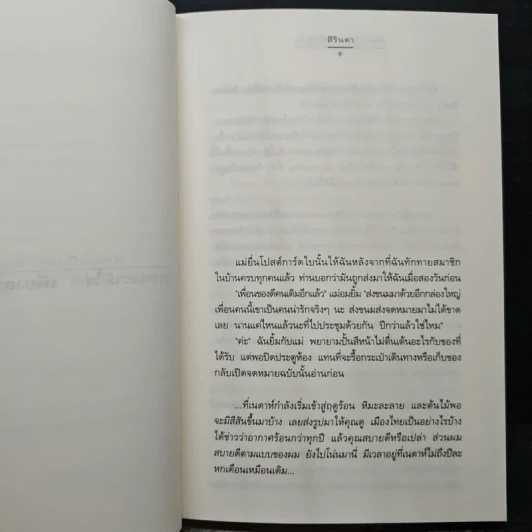 สิรินดา
๙
แม่ยื่นโปสต์การ์ดใบนั้นให้ฉันหลังจากที่ฉันทักทายสมาชิก
ในบ้านครบทุกคนแล้ว ท่านบอกว่ามันถูกส่งมาให้ฉันเมื่อสองวันก่อน
'เพื่อนของดีคนเดิมอีกแล้ว' แม่อมยิ้ม 'ส่งขนมมาด้วยอีกกล่องใหญ่
เพื่อนคนนี้เขาเป็นคนน่ารักจริงๆ นะ ส่งขนมส่งจดหมายมาไม่ได้ขาด
เลย นานแค่ไหนแล้วนะที่ไปประชุมด้วยกัน ปีกว่าแล้วใช่ไหม'
'ค่ะ' ฉันยิ้มกับแม่ พยายามปั้นสีหน้าไม่ตื่นเต้นอะไรกับของที่
ได้รับ แต่พอปิดประตูห้อง แทนที่จะรื้อกระเป๋าเดินทางหรือเก็บของ
กลับเปิดจดหมายฉบับนั้นอ่านก่อน
...ที่เนดาห์กำลังเริ่มเข้าสู่ฤดูร้อน หิมะละลาย และต้นไม้พอ
จะมีสีสันขึ้นมาบ้าง เลยส่งรูปมาให้คุณดู เมืองไทยเป็นอย่างไรบ้าง
ได้ข่าวว่าอากาศร้อนกว่าทุกปี แล้วคุณสบายดีหรือเปล่า ส่วนผม
สบายดีตามแบบของผม ยังไปโน่นมานี่ มีเวลาอยู่ที่เนดาห์ไม่ถึงปีละ
หกเดือนเหมือนเดิม...